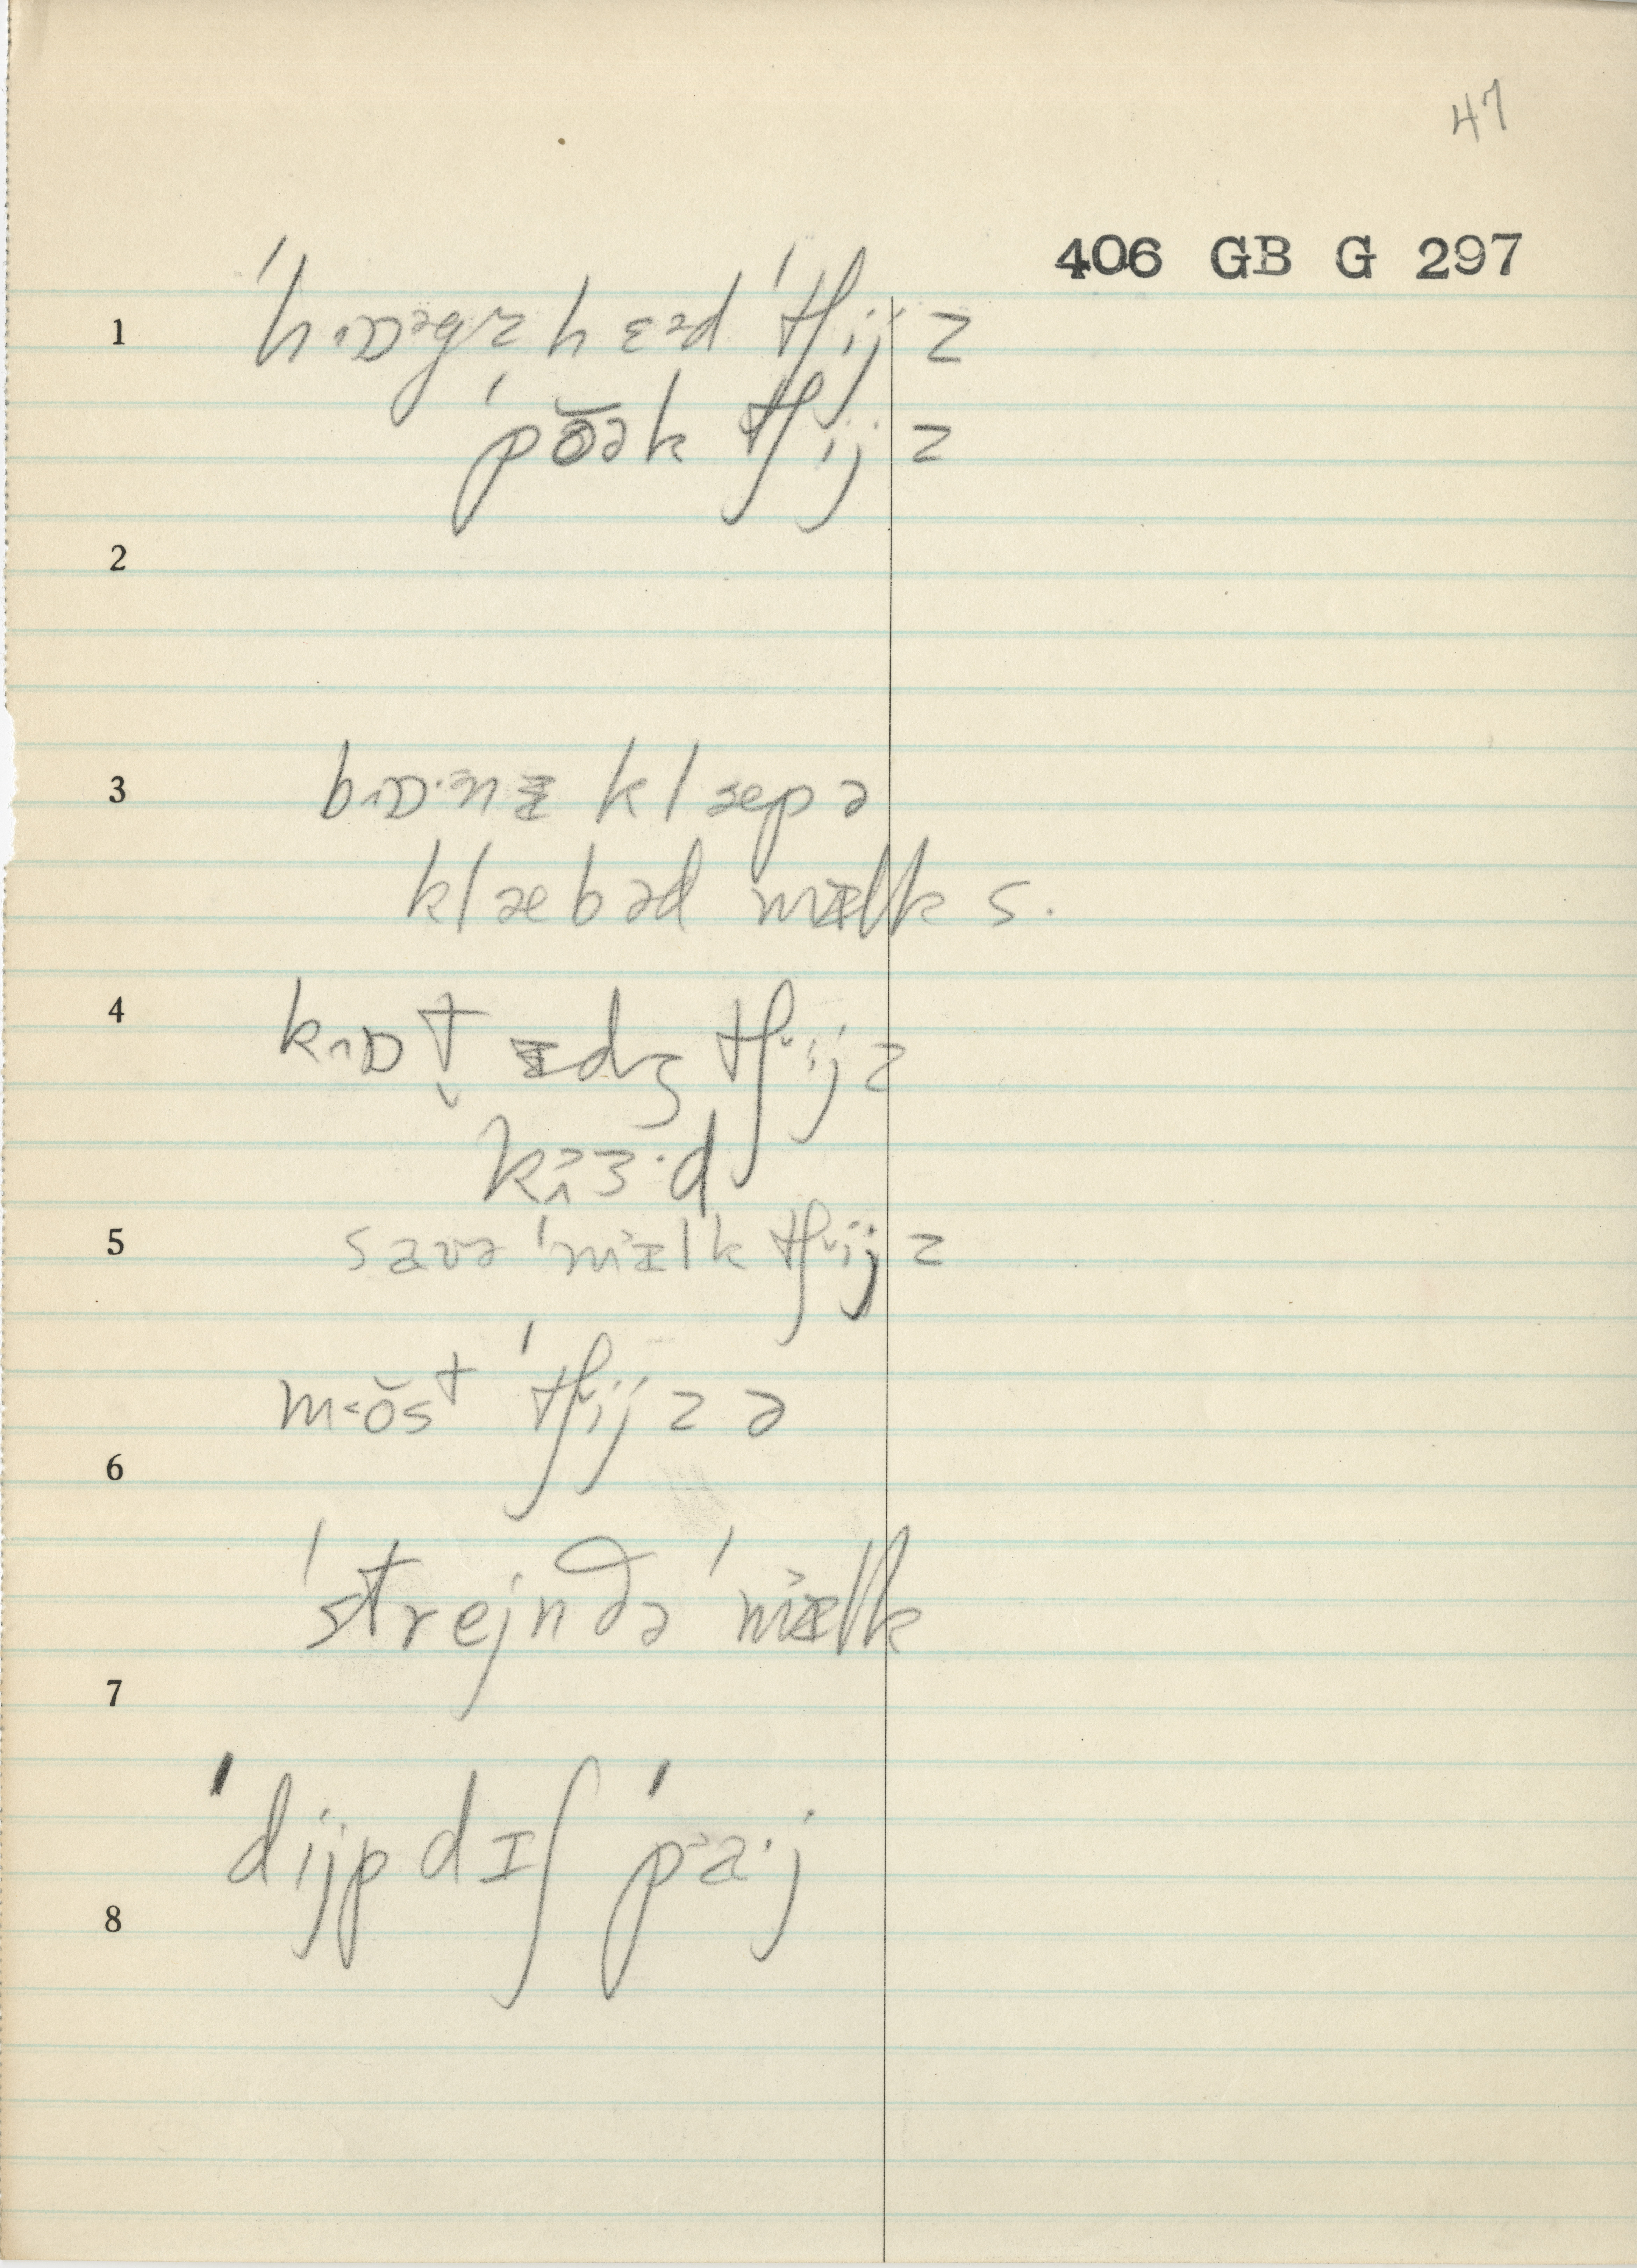 47
406 GB G 297
1 ˈhɒəgz hɛəd ˈtʃijz
ˈpŏək tʃijz
2
3
klæpə
klæbəd mɪəlk s.
4 kɒt̬ ɪdʒ tʃijz
kɜ·d
5 savə ˈmɪəlk tʃijz
mŏst ˈtʃijzə
6
ˈstrejndə ˈmɪəlk
7
ˈdijp dɪʃ ˈpa·j
8